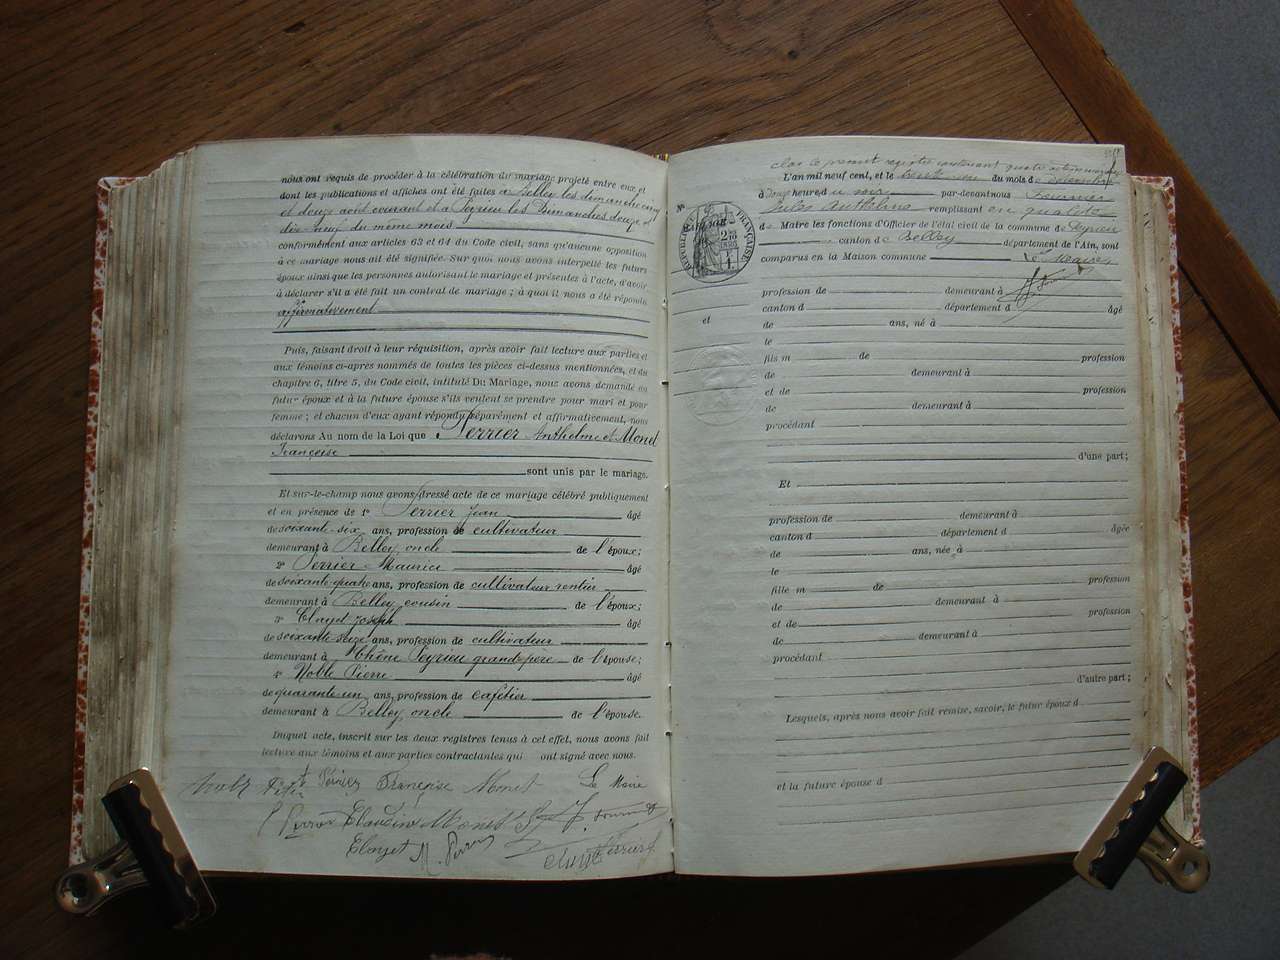 nous ont requis de procéder à la célébration du mariage projeté entre eux, et
dont les publications et affiches ont été faites à Belley les dimanches cinq
et douze août courant et à Peyrieu les Dimanches douze et
dix neuf du même mois
conformément aux articles 63 et 64 du Code civil, sans qu'aucune opposition
à ce mariage nous ait été signifiée. Sur quoi nous avons interpellé les futurs
époux ainsi que les personnes autorisant le mariage et présentes à l'acte, d'avoir
à déclarer s'il a été fait un contrat de mariage ; à quoi il nous a été répondu
affirmativement
Puis, faisant droit à leur réquisition, après avoir fait lecture aux parties et
aux témoins ci-après nommés de toutes les pièces ci-dessus mentionnées, et du
chapitre 6, titre 5, du Code civil, intitulé Du Mariage, nous avons demandé au
futur époux et à la future épouse s'ils veulent se prendre pour mari et pour
femme ; et chacun d'eux ayant répondu séparément et affirmativement, nous
déclarons Au nom de la Loi que Perrier Anthelme et Monet
Françoise
sont unis par le mariage.
Et sur-le-champ nous avons dressé acte de ce mariage célébré publiquement
et en présence de 1° Perrier Jean âgé
de soixante-six ans, profession de cultivateur
demeurant à Belley, oncle de l'époux;
2° Perrier Maurice âgé
de soixante quatre ans, profession de cultivateur rentier
demeurant à Belley, cousin de l'époux;
3° Clayet Joseph âgé
de soixante seize ans, profession de cultivateur
demeurant à Rhône Peyrieu grand-père de l'épouse;
4° Noble Pierre âgé
de quarante-un ans, profession de cafetier
demeurant à Belley, oncle de l'épouse.
Duquel acte, inscrit sur les deux registres tenus à cet effet, nous avons fait
lecture aux témoins et aux parties contractantes qui ont signé avec nous.
Perrier Françoise Monet Le Maire
Perrier Claudine Monet J. Fournier
Clayet M. Perrier Perrier
clos le premier registre contenant quatre actes
L'an mil neuf cent, et le trente un du mois d décembre
à douze heure, du soir par-devant nous Fournier
Jules Anthelme remplissant en qualité
de Maire les fonctions d'Officier de l'état civil de la commune de Peyrieu
canton de Belley département de l'Ain, sont
comparus en la Maison commune Le Maire
J. Fournier
N°
RÉPUBLIQUE FRANÇAISE
et
profession de demeurant à
canton d département d âgé
de ans, né à
le
fils m de profession
de demeurant à
et de profession
de demeurant à
procédant
d'une part;
Et
profession de demeurant à
canton d département d âgée
de ans, née à
le
fille m de profession
de demeurant à
et de profession
de demeurant à
procédant
d'autre part;
Lesquels, après nous avoir fait remise, savoir, le futur époux d
et la future épouse d